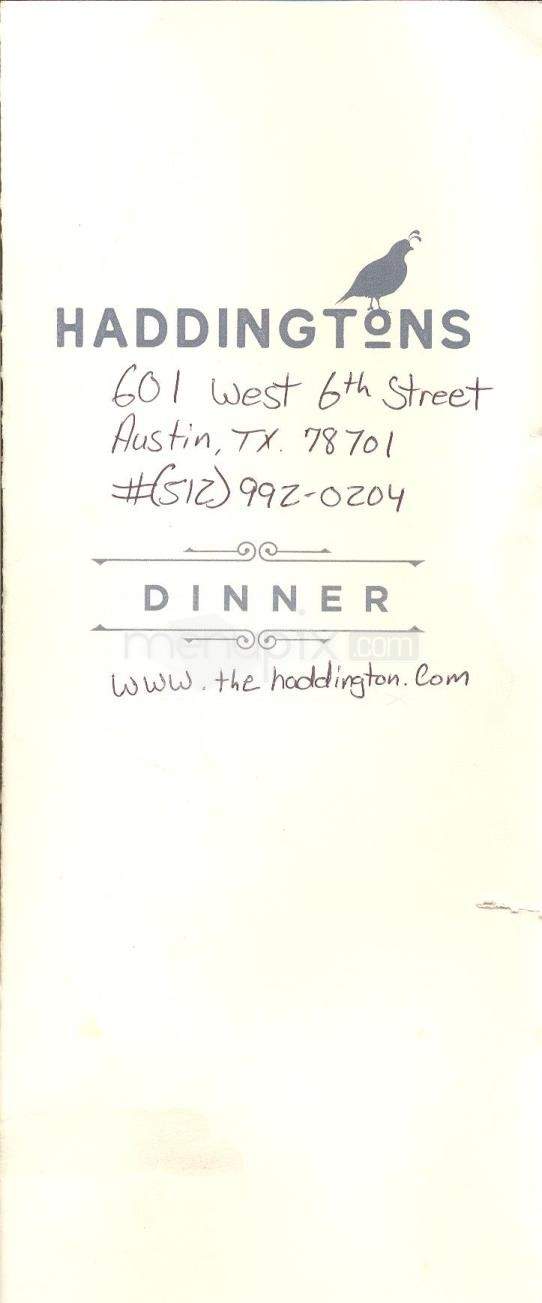 HADDINGTONS
601 West 6th Street
Austin, TX. 78701
#(512) 992-0204
DINNER
menupix.com
www.thehaddington.com